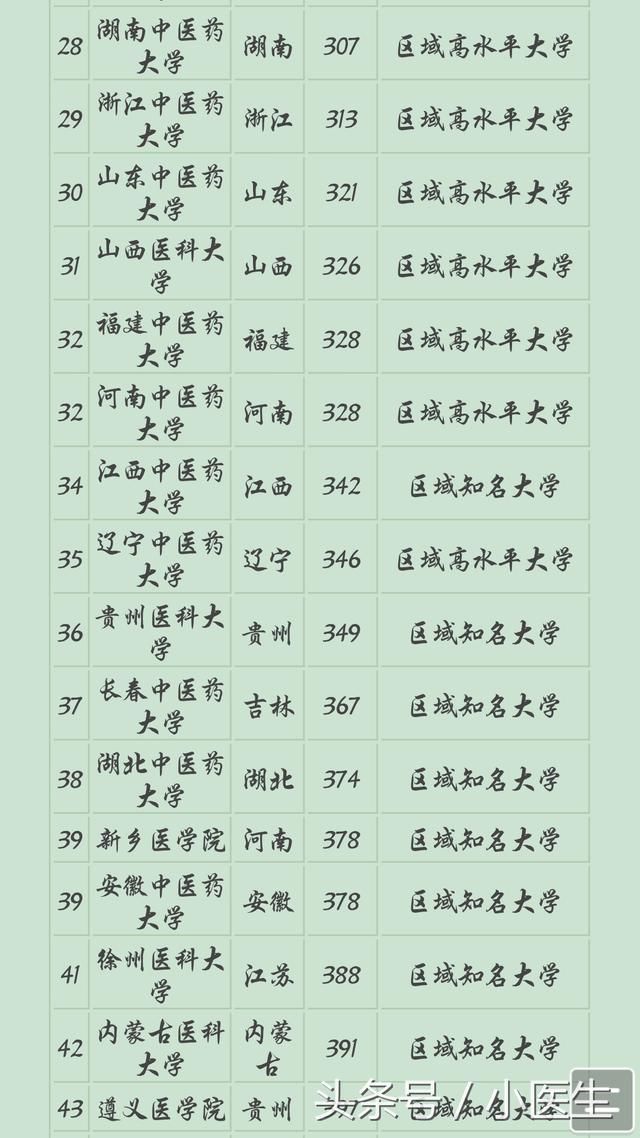 28 湖南中医药大学 湖南 307 区域高水平大学
29 浙江中医药大学 浙江 313 区域高水平大学
30 山东中医药大学 山东 321 区域高水平大学
31 山西医科大学 山西 326 区域高水平大学
32 福建中医药大学 福建 328 区域高水平大学
32 河南中医药大学 河南 328 区域高水平大学
34 江西中医药大学 江西 342 区域知名大学
35 辽宁中医药大学 辽宁 346 区域高水平大学
36 贵州医科大学 贵州 349 区域知名大学
37 长春中医药大学 吉林 367 区域知名大学
38 湖北中医药大学 湖北 374 区域知名大学
39 新乡医学院 河南 378 区域知名大学
39 安徽中医药大学 安徽 378 区域知名大学
41 徐州医科大学 江苏 388 区域知名大学
42 内蒙古医科大学 内蒙古 391 区域知名大学
43 遵义医学院 贵州 区域知名大学
头条号 / 小医生